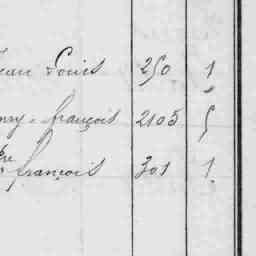 Jean Louis 250 1
françois 2105 5
françois 301 1